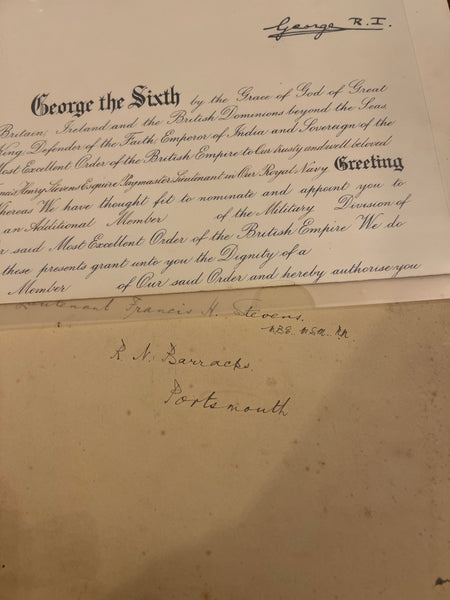 George R.I.
George the Sixth by the Grace of God of Great
Britain, Ireland and the British Dominions beyond the Seas
King, Defender of the Faith, Emperor of India and Sovereign of the
Most Excellent Order of the British Empire to Our trusty and well beloved
Francis Henry Stevens Esquire Paymaster Lieutenant in Our Royal Navy Greeting
Whereas We have thought fit to nominate and appoint you to
an Additional Member of the Military Division of
said Most Excellent Order of the British Empire We do
these presents grant unto you the Dignity of a
Member of Our said Order and hereby authorise you
Lieutenant Francis H. Stevens.
M.B.E. R.N.
R. N. Barracks
Portsmouth